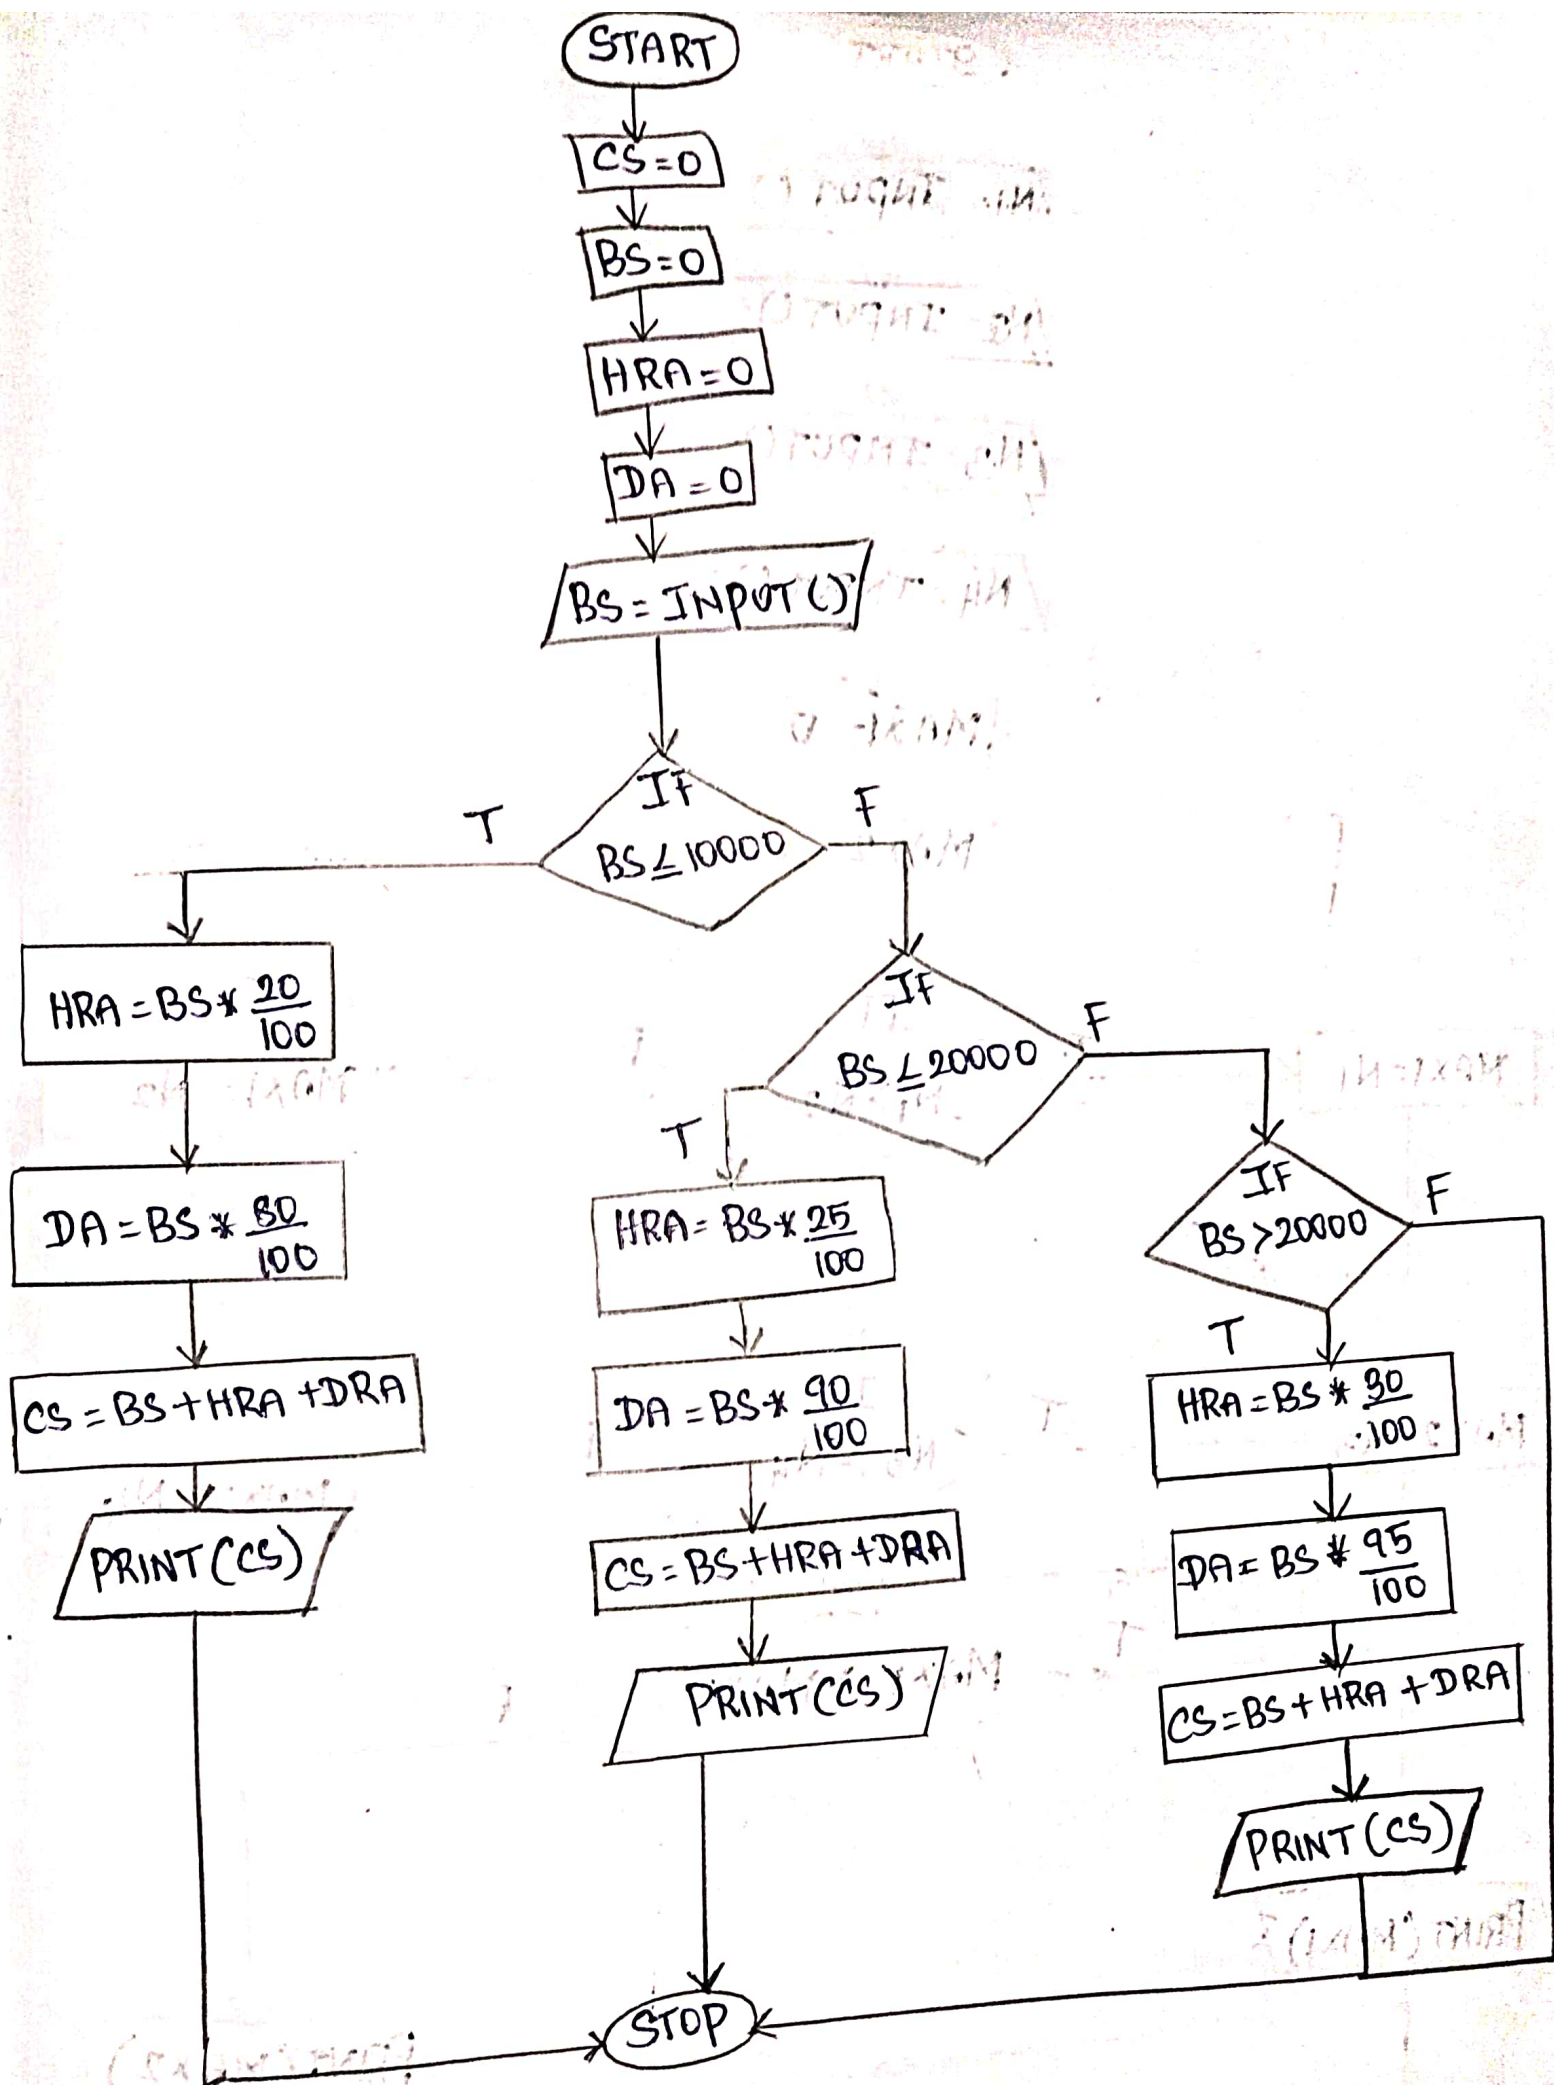 START
CS=0
BS=0
HRA=0
DA=0
BS=INPUT()
IF
BS≤10000
T
F
HRA=BS*20/100
DA=BS*80/100
CS=BS+HRA+DRA
PRINT(CS)
IF
BS≤20000
T
F
HRA=BS*25/100
DA=BS*90/100
CS=BS+HRA+DRA
PRINT(CS)
IF
BS>20000
T
F
HRA=BS*30/100
DA=BS*95/100
CS=BS+HRA+DRA
PRINT(CS)
STOP